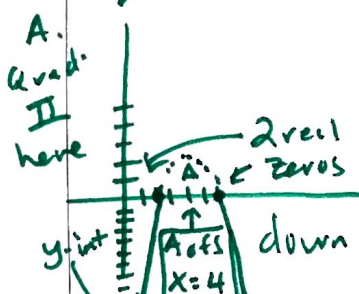 A.
Quad.
II
here
2 real
zeros
y-int
A of S
X=4
down